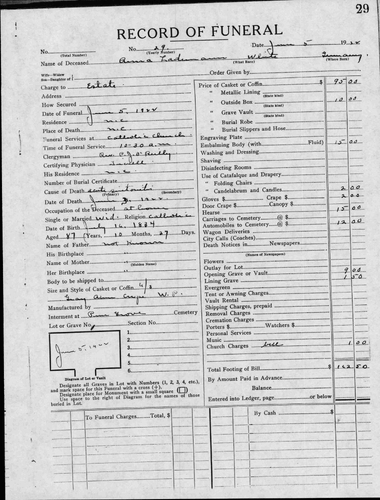 29
RECORD OF FUNERAL
No. 29 Date June 5 1922
(Total Number) (Yearly Number)
Name of Deceased Anna White Germany
(What Race)
Order Given by
Charge to Estate
Address
How Secured
Date of Funeral June 5, 1922
Residence N.C.
Place of Death N.C.
Funeral Services at Catholic Church
Time of Funeral Service 10:30 a.m.
Clergyman Rev. P.J. O'Reilly
Certifying Physician
His Residence N.C.
Number of Burial Certificate
Cause of Death
Date of Death June 3, 1922
Occupation of the Deceased at home
Single or Married Wid. Religion Catholic
Date of Birth July 16, 1834
Aged 87 Years, 10 Months, 27 Days
Name of Father not known
His Birthplace
Name of Mother
(Maiden Name)
Her Birthplace
Body to be shipped to
Size and Style of Casket or Coffin 6/3
Manufactured by
Interment at Pine Grove Cemetery
Lot or Grave No. Section No.
1 2 3
June 5, 1922
Diagram of Lot or Vault
Designate all Graves in Lot with Numbers (1, 2, 3, 4, etc.),
and mark space for this Funeral with a cross (+).
Designate place for Monument with a small square
Use space to right of Diagram for the names of those
buried in Lot.
Price of Casket or Coffin $ 95.00
" Metallic Lining
(State Kind)
" Outside Box 10.00
(State Kind)
" Grave Vault
(State Kind)
" Burial Robe
(State Kind)
" Burial Slippers and Hose
Engraving Plate
Embalming Body (with Fluid) 15.00
Washing and Dressing
Shaving
Disinfecting Rooms
Use of Catafalque and Drapery
" Folding Chairs
" Candelabrum and Candles 2.00
Gloves $ Crape $ 2.00
Door Crape $ Canopy $
Hearse 15.00
Carriages to Cemetery @ $
Automobiles to Cemetery @ $ 12.00
Wagon Deliveries
City Calls (Coaches)
Death Notices in Newspapers
(Names of Newspapers)
Flowers
Outlay for Lot
Opening Grave or Vault 9.00
Lining Grave 1.50
Evergreen
Tent or Awning Charges
Vault Rental
Shipping Charges, prepaid
Removal Charges
Cremation Charges
Porters $ Watchers $
Personal Services
Music
Church Charges bell 1.00
Total Footing of Bill $ 162.50
By Amount Paid in Advance
Balance
Entered into Ledger, page or below
To Funeral Charges, Total $
By Cash $